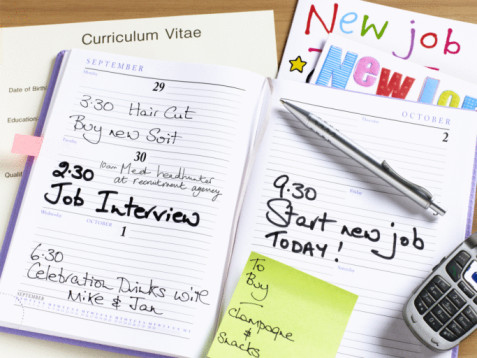 Curriculum Vitae
Date of Birth
Education
New job
New Jo
SEPTEMBER
Monday
29
3.30 Hair Cut
Buy new Suit
Tuesday
30
10am Meet headhunter
at recruitment agency
2.30
Job Interview
Wednesday
OCTOBER
1
6.30
Celebration Drinks with
Mike & Jan
SEPTEMBER
OCTOBER
Thursday
2
Friday
9.30
Start new job
TODAY!
Saturday
To
Buy
-
Champagne
&
Snacks